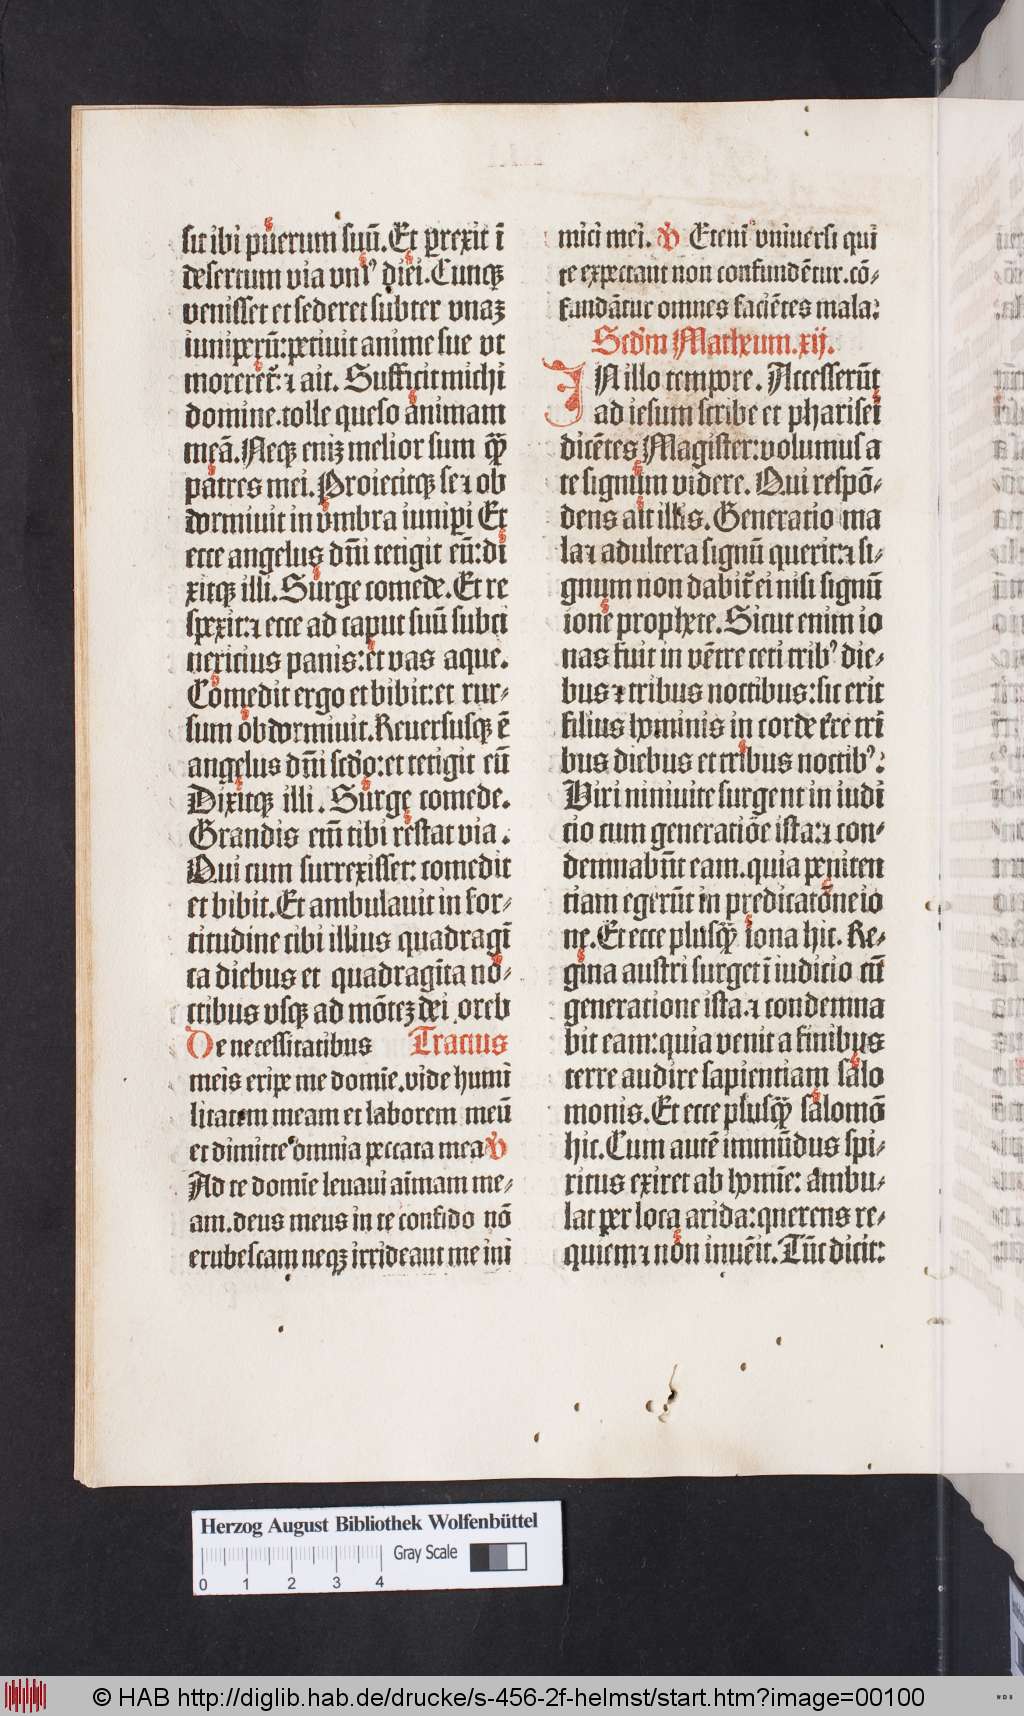 sit ibi puerum suū. Et ꝑrexit ī
desertum via vniꝰ diei. Cunqꝫ
venisset et sederet subter vnaꝫ
iuniperū: petiuit anime sue vt
moreret᷑: ⁊ ait. Sufficit michi
domine. tolle queso animam
meā. Neqꝫ eniꝫ melior sum qꝙ̄
patres mei. Proiecitqꝫ se ⁊ ob
dormiuit in vmbra iuniꝑi Et
ecce angelus dn̄i tetigit eū: di
xitqꝫ illi. Surge comede. Et re
spexit: ⁊ ecce ad caput suū subci
nericius panis: et vas aque.
Comedit ergo et bibit: et rur⸗
sum obdormiuit. Reuersusqꝫ ē
angelus dn̄i scd̓o: et tetigit eū
Dixitqꝫ illi. Surge comede.
Grandis em̄ tibi restat via.
Qui cum surrexisset: comedit
et bibit. Et ambulauit in for⸗
titudine cibi illius quadragī
ta diebus et quadragīta no⸗
ctibus vsqꝫ ad mōteꝫ dei oreb
De necessitatibus Tractus
meis eripe me domīe. vide humi
litatem meam et laborem meū
et dimitte omnia peccata mea ℣
Ad te domīe leuaui aīmam me⸗
am. deus meus in te confido nō
erubescam neqꝫ irrideant me ini
mici mei. ℣ Etenī vniuersi qui
te expectant non confundētur. cō⸗
fundātur omnes faciētes mala:
Scd̓m Matheum. xij.
IN illo tempore. Accesserūt
ad iesum scribe et pharisei
dicētes Magister: volumus a
te signum videre. Qui respō⸗
dens ait illis. Generatio ma
la ⁊ adultera signū querit: ⁊ si⸗
gnum non dabit᷑ ei nisi signū
ione prophete. Sicut enim io
nas fuit in vētre ceti tribꝰ die⸗
bus ⁊ tribus noctibus: sic erit
filius hominis in corde t̓re tri
bus diebus et tribus noctibꝰ:
Viri niniuite surgent in iudi
cio cum generatiōe ista: ⁊ con⸗
demnabūt eam. quia peniten
tiam egerūt in predicatōne io
ne. Et ecce plusqꝙ̄ iona hic. Re⸗
gina austri surget ī iudicio cū
generatione ista. ⁊ condemna
bit eam: quia venit a finibus
terre audire sapientiam salo
monis. Et ecce plusqꝙ̄ salomō
hic. Cum autē immūdus spi⸗
ritus exiret ab homīe: ambu⸗
lat per loca arida: querens re⸗
quiem ⁊ non inuēit. Tūc dicit:
Herzog August Bibliothek Wolfenbüttel
Gray Scale
0 1 2 3 4
© HAB http://diglib.hab.de/drucke/s-456-2f-helmst/start.htm?image=00100